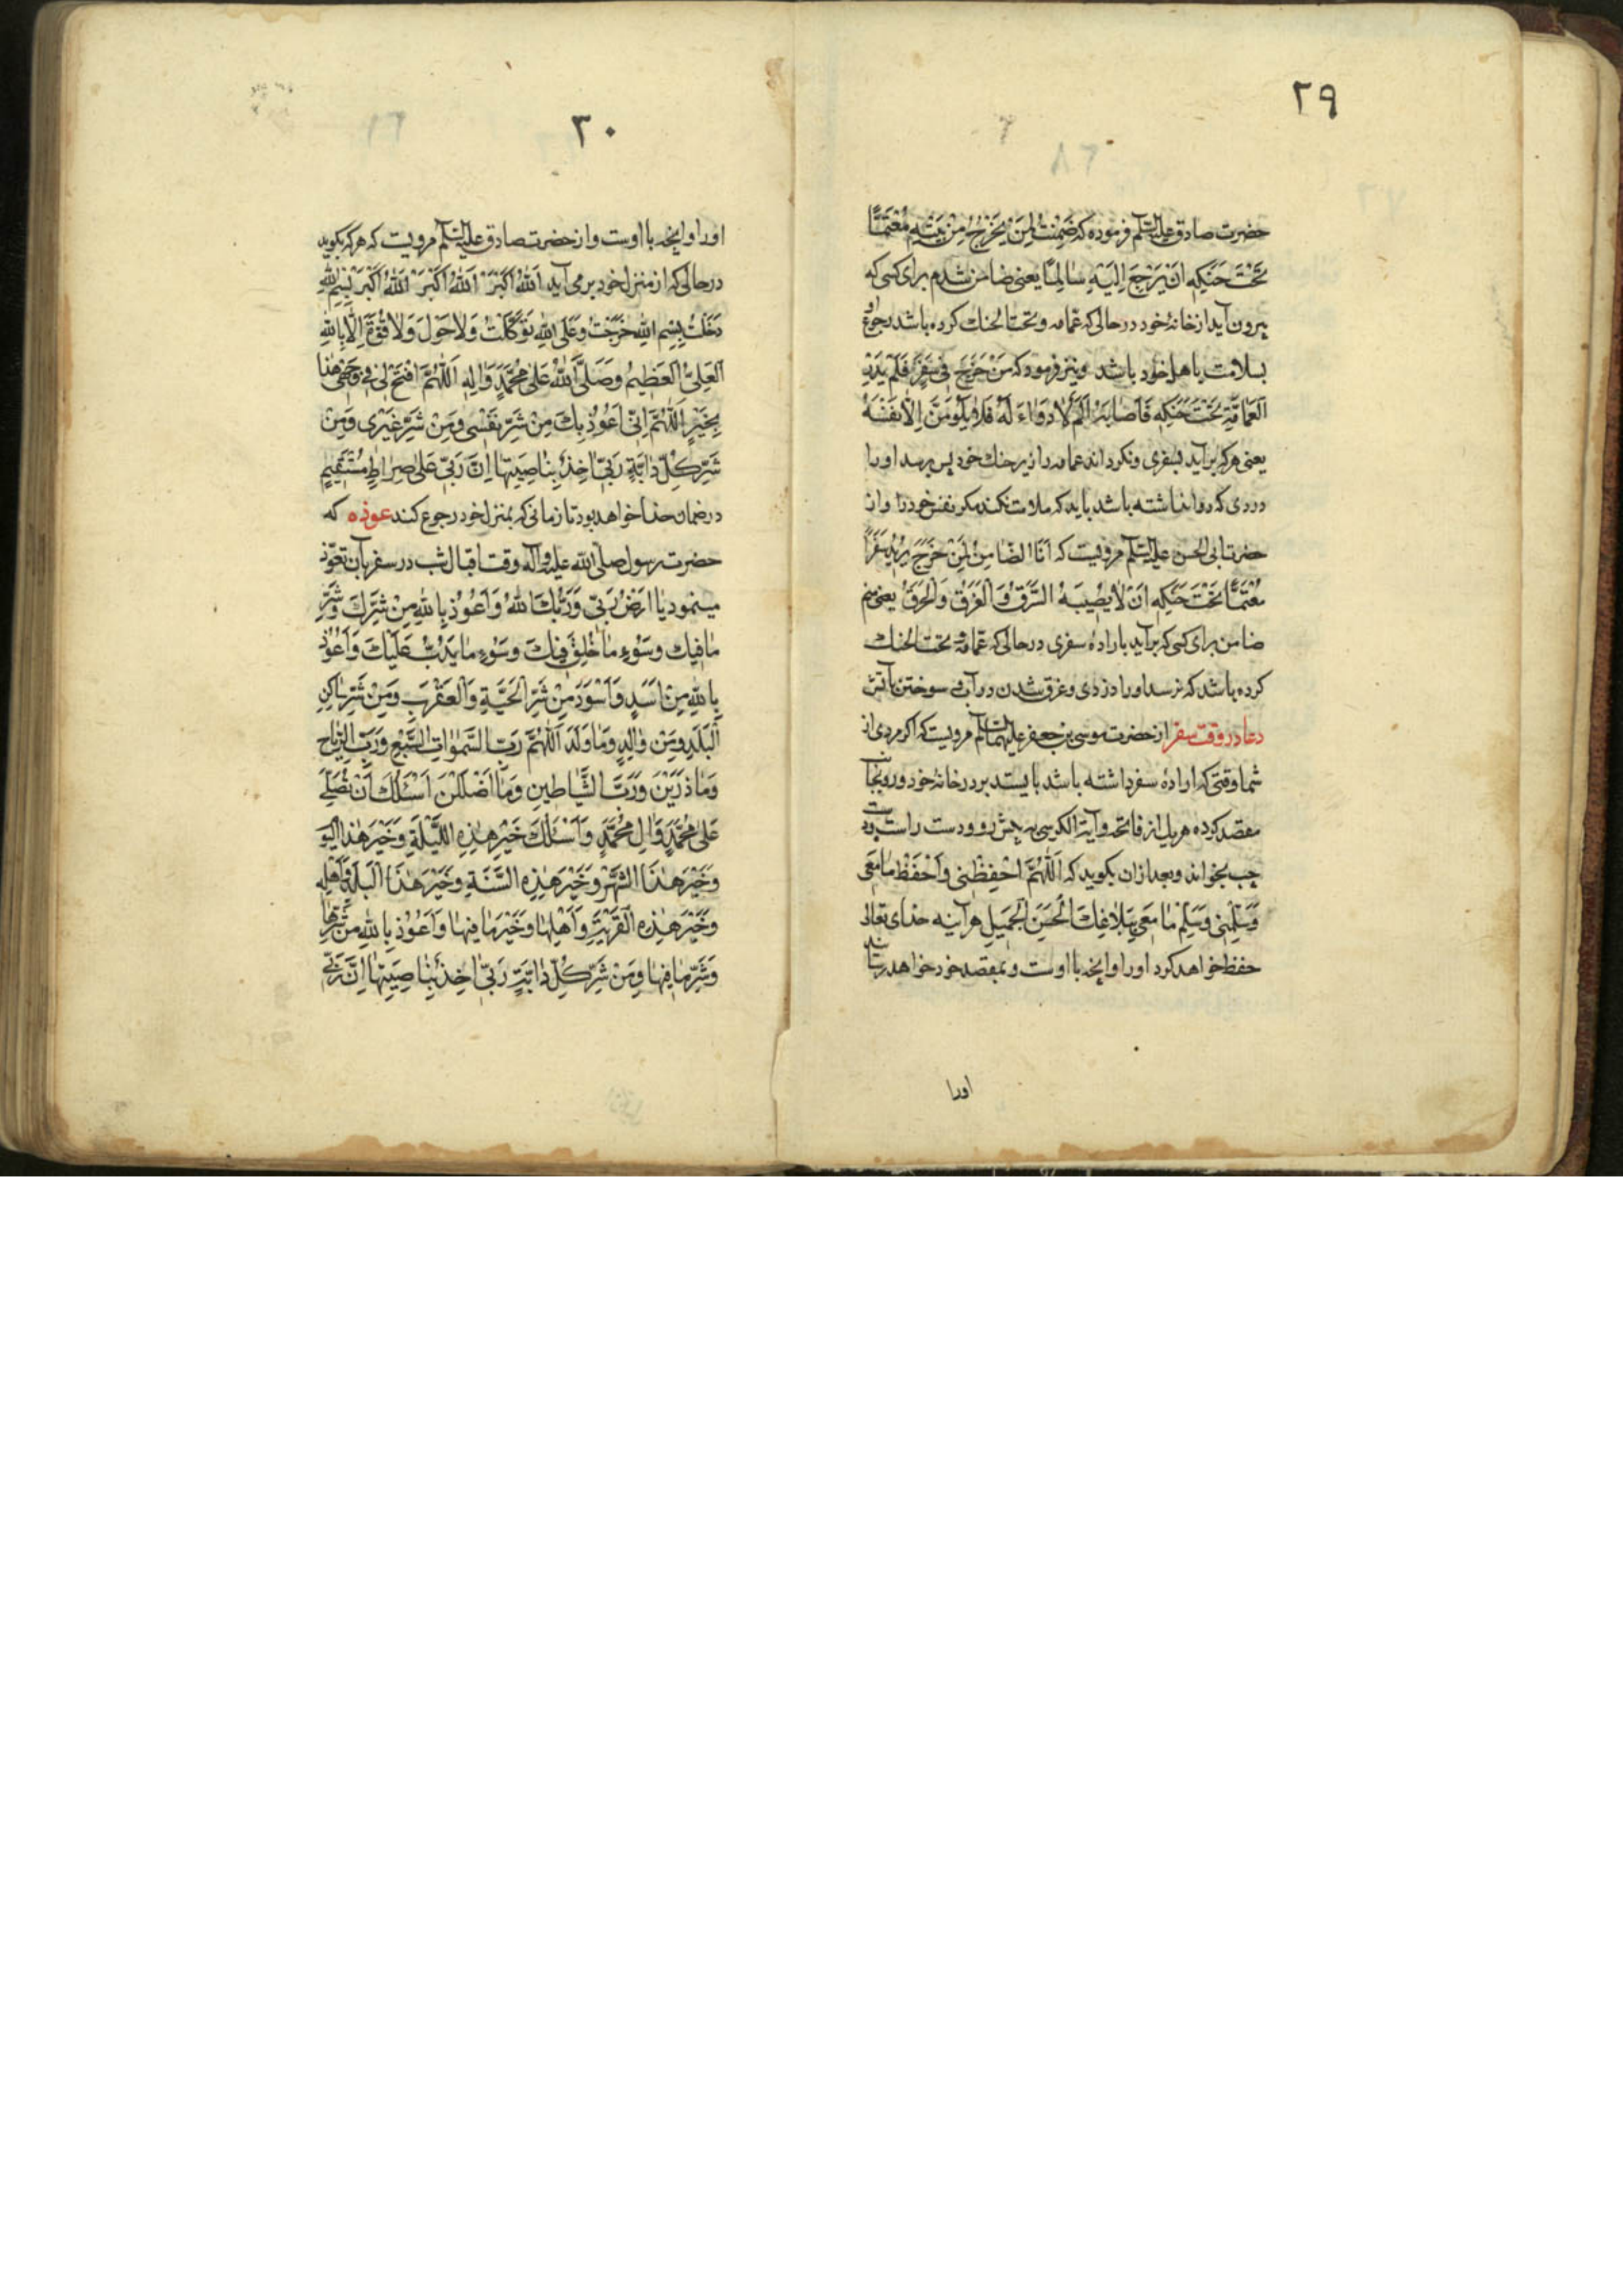 ٢٩
حضرت صادق علیه السلم فرموده که ضَمِنْتُ لِمَنْ یَخْرُجُ مِنْ بَیْتِهِ مُعْتَمًّا
تَحْتَ حَنَکِهِ اَنْ یَرْجِعَ اِلَیْهِ سٰالِمًا یعنی ضامن شدم برای کسی که
بیرون آید از خانهٔ خود در حالی که عمامه و تحت الحنك کرده باشد رجوع او
بسلامت باهل خود باشد و نیز فرمود که مَنْ خَرَجَ فی سَفَرٍ فَلَمْ یُدِرِ
العَمٰامَةِ تَحْتَ حَنَکِهِ فَاَصٰابَهُ اَلَمٌ لاٰ دَوٰاءَ لَهُ فَلاٰ یَلُومَنَّ اِلّاٰ نَفْسَهُ
یعنی هرکه برآید بسفری و نکرداند عمامه را زیر حنك خود پس برسد او را
دردی که دوا نداشته باشد باید که ملامت نکند مکر نفس خود را و از
حضرت ابی الحسن علیه السلم مرویست که اَنَا الضّٰامِنُ لِمَنْ خَرَجَ یُرِیدُ سَفَرًا
مُعْتَمًّا تَحْتَ حَنَکِهِ اَنْ لاٰ یُصِیبَهُ السَّرَقُ وَالْغَرَقُ وَالْحَرَقُ یعنی منم
ضامن برای کسی که برآید بارادهٔ سفری در حالی که عمامه و تحت الحنك
کرده باشد که نرسد او را دزدی و غرق شدن در آب و سوختن بآتش
دعا در وقت سفر از حضرت موسی بن جعفر علیهما السلم مرویست که اکر مردی از
شما وقتی که ارادهٔ سفر داشته باشد بایستد بر در خانهٔ خود و رو بجانب
مقصد کرده هر یك از فاتحه و آیة الکرسی به پیش رو و دست راست و دست
چپ بخواند و بعد از ان بکوید که اَللّٰهُمَّ احْفِظْنی وَاحْفَظْ مٰا مَعِیَ
وَسَلِّمْنی وَسَلِّمْ مٰا مَعِیَ بِبَلاٰغِكَ الْحَسَنِ الْجَمِیلِ هر آینه خدای تعالی
حفظ خواهد کرد او را و آنچه با اوست و بمقصد خود خواهد رسانید
اورا
٣٠
او را و آنچه با اوست و از حضرت صادق علیه السلم مرویست که هرکه بکوید
در حالی که از منزل خود برمی آید اَللّٰهُ اَکْبَرُ اَللّٰهُ اَکْبَرُ اَللّٰهُ اَکْبَرُ بِسْمِ اللّٰهِ
دَخَلْتُ بِسْمِ اللّٰهِ خَرَجْتُ وَعَلَی اللّٰهِ تَوَکَّلْتُ وَلاٰ حَوْلَ وَلاٰ قُوَّةَ اِلّاٰ بِاللّٰهِ
العَلِیِّ العَظِیمِ وَصَلَّی اللّٰهُ عَلیٰ مُحَمَّدٍ وَاٰلِهِ اَللّٰهُمَّ افْتَحْ لی فی وَجْهی هٰذا
بِخَیْرٍ اَللّٰهُمَّ اِنّی اَعُوذُ بِكَ مِنْ شَرِّ نَفْسی وَمِنْ شَرِّ غَیْری وَمِنْ
شَرِّ کُلِّ دٰابَّةٍ رَبّی اٰخِذٌ بِنٰاصِیَتِهٰا اِنَّ رَبّی عَلیٰ صِرٰاطٍ مُسْتَقِیمٍ
در ضمان خدا خواهد بود تا زمانی که بمنزل خود رجوع کند عوذه که
حضرت رسول صلی الله علیه وآله وقت اقبال شب در سفر بآن تعوّذ
مینمود یٰا اَرْضُ رَبّی وَرَبُّكِ اللّٰهُ وَاَعُوذُ بِاللّٰهِ مِنْ شَرِّكِ وَشَرِّ
مٰا فیكِ وَسُوءِ مٰا خُلِقَ فیكِ وَسُوءِ مٰا یَدُبُّ عَلَیْكِ وَاَعُوذُ
بِاللّٰهِ مِنْ اَسَدٍ وَاَسْوَدَ مِنْ شَرِّ الْحَیَّةِ وَالْعَقْرَبِ وَمِنْ شَرِّ سٰاکِنِ
البَلَدِ وَمِنْ وٰالِدٍ وَمٰا وَلَدَ اَللّٰهُمَّ رَبَّ السَّمٰوٰاتِ السَّبْعِ وَرَبَّ الرِّیٰاحِ
وَمٰا ذَرَیْنَ وَرَبَّ الشَّیٰاطینِ وَمٰا اَضْلَلْنَ اَسْئَلُكَ اَنْ تُصَلِّیَ
عَلیٰ مُحَمَّدٍ وَاٰلِ مُحَمَّدٍ وَاَسْئَلُكَ خَیْرَ هٰذِهِ اللَّیْلَةِ وَخَیْرَ هٰذَا الیَوْمِ
وَخَیْرَ هٰذَا الشَّهْرِ وَخَیْرَ هٰذِهِ السَّنَةِ وَخَیْرَ هٰذَا البَلَدِ وَاَهْلِهِ
وَخَیْرَ هٰذِهِ القَرْیَةِ وَاَهْلِهٰا وَخَیْرَ مٰا فیهٰا وَاَعُوذُ بِاللّٰهِ مِنْ شَرِّهٰا
وَشَرِّ مٰا فیهٰا وَمِنْ شَرِّ کُلِّ دٰابَّةٍ رَبّی اٰخِذٌ بِنٰاصِیَتِهٰا اِنَّ رَبّی